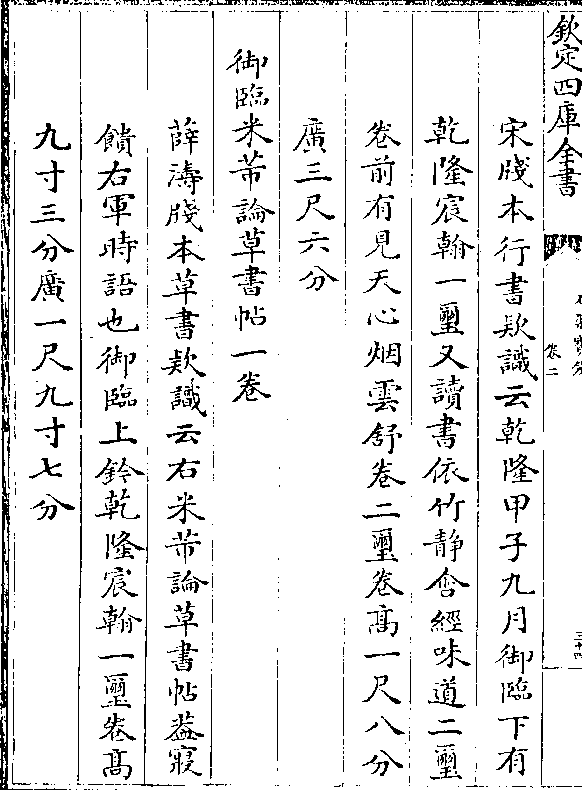 欽定四庫全書
卷二
三十四
宋牋本行書欵識云乾隆甲子九月御臨下有
乾隆宸翰一璽又讀書依竹靜含經味道二璽
卷前有見天心烟雲舒卷二璽卷髙一尺八分
廣三尺六分
御臨米芾論草書帖一卷
薛濤牋本草書欵識云右米芾論草書帖葢寢
饋右軍時語也御臨上鈐乾隆宸翰一璽卷髙
九寸三分廣一尺九寸七分